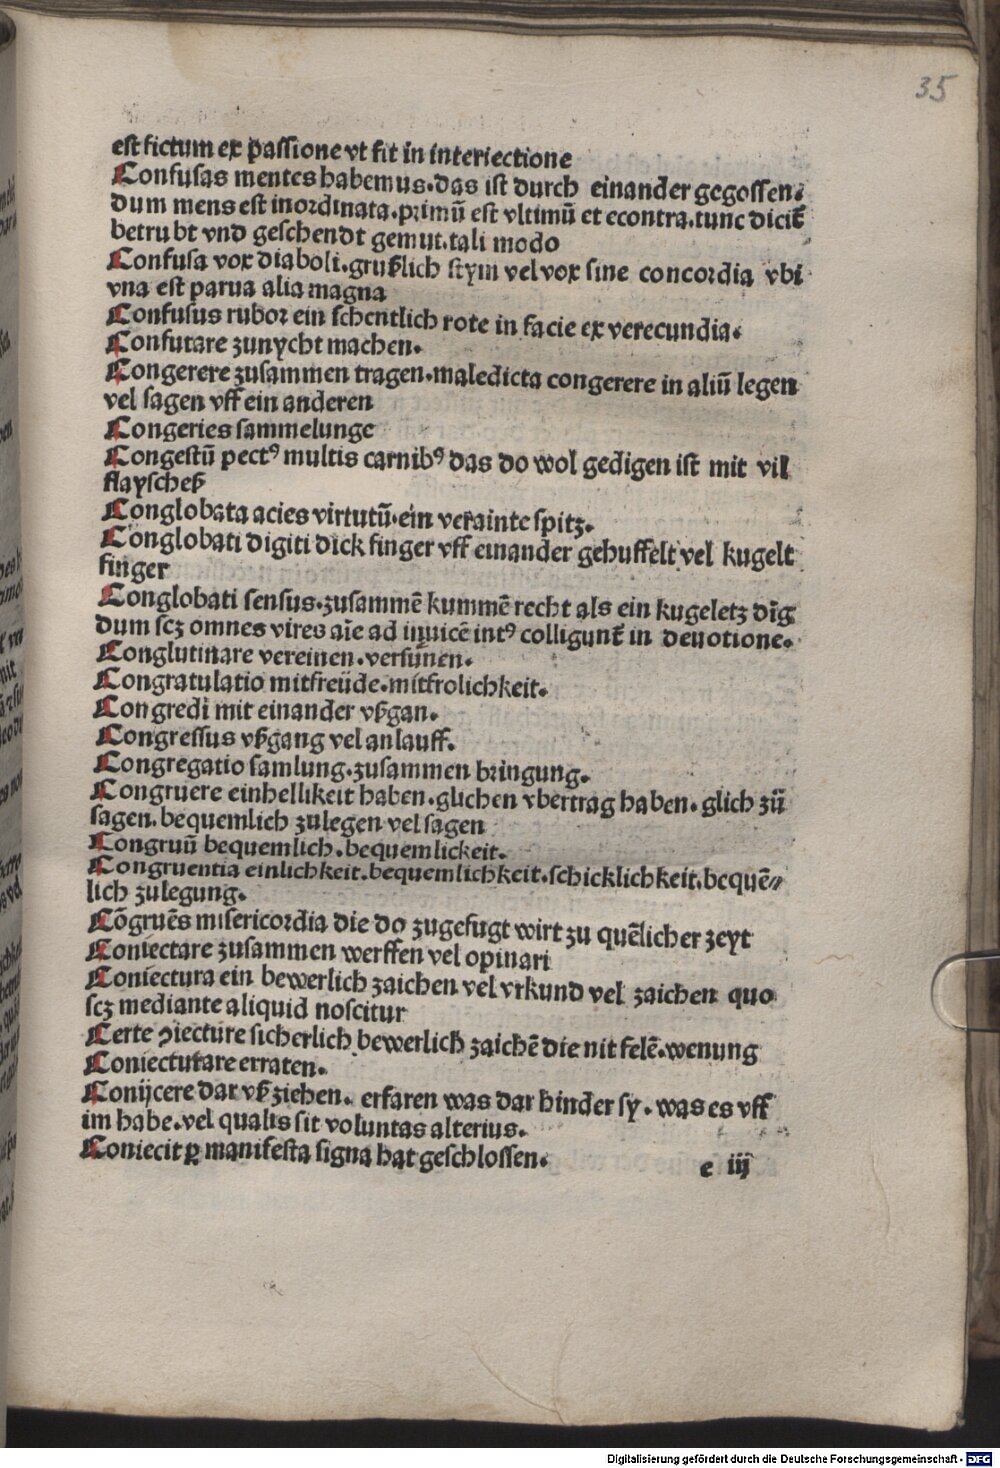 35
est fictum ex passione vt fit in interiectione
Confusas mentes habemus. das ist durch einander gegossen.
dum mens est inordinata. primū est vltimū et econtra. tunc dicit̄
betrubt vnd geschendt gemut. tali modo
Confusa vox diaboli. grußlich stym vel vox sine concordia vbi
vna est parua alia magna
Confusus rubor ein schentlich rote in facie ex verecundia.
Confutare zunycht machen.
Congerere zusammen tragen. maledicta congerere in aliū legen
vel sagen vff ein anderen
Congeries sammelunge
Congestū pectꝰ multis carnibꝰ das do wol gedigen ist mit vil
flayscheß
Conglobata acies virtutū. ein verainte spitz.
Conglobati digiti dick finger vff einander gehuffelt vel kugelt
finger
Conglobati sensus. zusammē kummē recht als ein kugeletz dīg
dum scꝫ omnes vires aīe ad inuicē intꝰ colligunt̄ in deuotione.
Conglutinare vereinen. versünen.
Congratulatio mitfreüde. mitfrolichkeit.
Congredi mit einander vßgan.
Congressus vßgang vel anlauff.
Congregatio samlung. zusammen bringung.
Congruere einhellikeit haben. glichen vbertrag haben. glich zū
sagen. bequemlich zulegen vel sagen
Congruū bequemlich. bequemlickeit.
Congruentia einlichkeit. bequemlichkeit. schicklichkeit. bequē⸗
lich zulegung.
Cōgruēs misericordia die do zugefugt wirt zu quēlicher zeyt
Coniectare zusammen werffen vel opinari
Coniectura ein bewerlich zaichen vel vrkund vel zaichen quo
scꝫ mediante aliquid noscitur
Certe ꝯiecture sicherlich bewerlich zaichē die nit felē. wenung
Coniecturare erraten.
Conijcere dar vß ziehen. erfaren was dar hinder sy. was es vff
im habe. vel qualis sit voluntas alterius.
Coniecit ꝑ manifesta signa hat geschlossen.
e iij
Digitalisierung gefördert durch die Deutsche Forschungsgemeinschaft - DFG